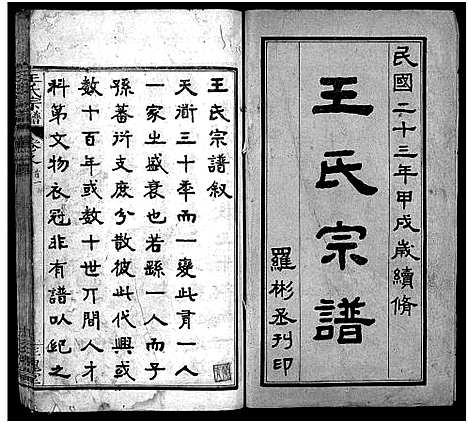 民國二十三年甲戌歲續脩
王氏宗譜
羅彬丞刊印
王氏宗譜叙
天道三十年而一變此有一人
一家之盛衰也若繇一人而子
孫蕃衍支庶分散彼此代興或
數十百年或數十世丌間人才
科第文物衣冠非有譜以紀之
王氏宗譜